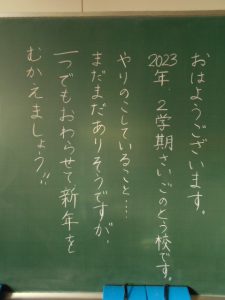 おはようございます。
2023年、2学期さいごのとう校です。
やりのこしていること…
まだまだありそうですが、
一つでもおわらせて新年を
むかえましょう!!